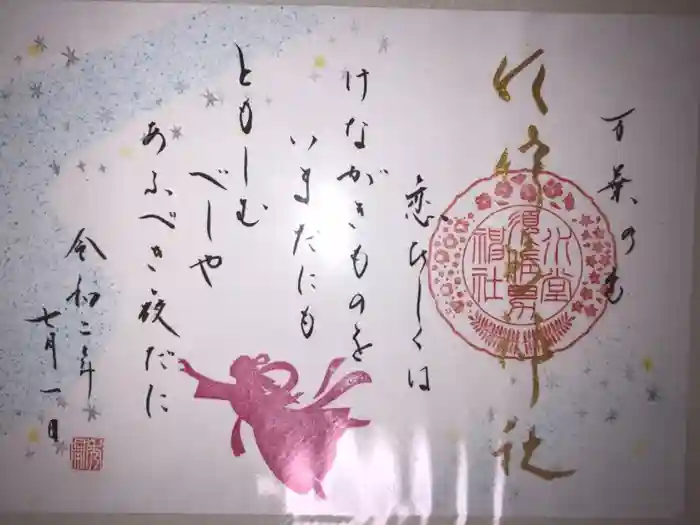 万葉の
神社
恋ひしくは
けながきものを
いまだにも
ともしむ
べしや
あふべき夜だに
令和二年
七月一日